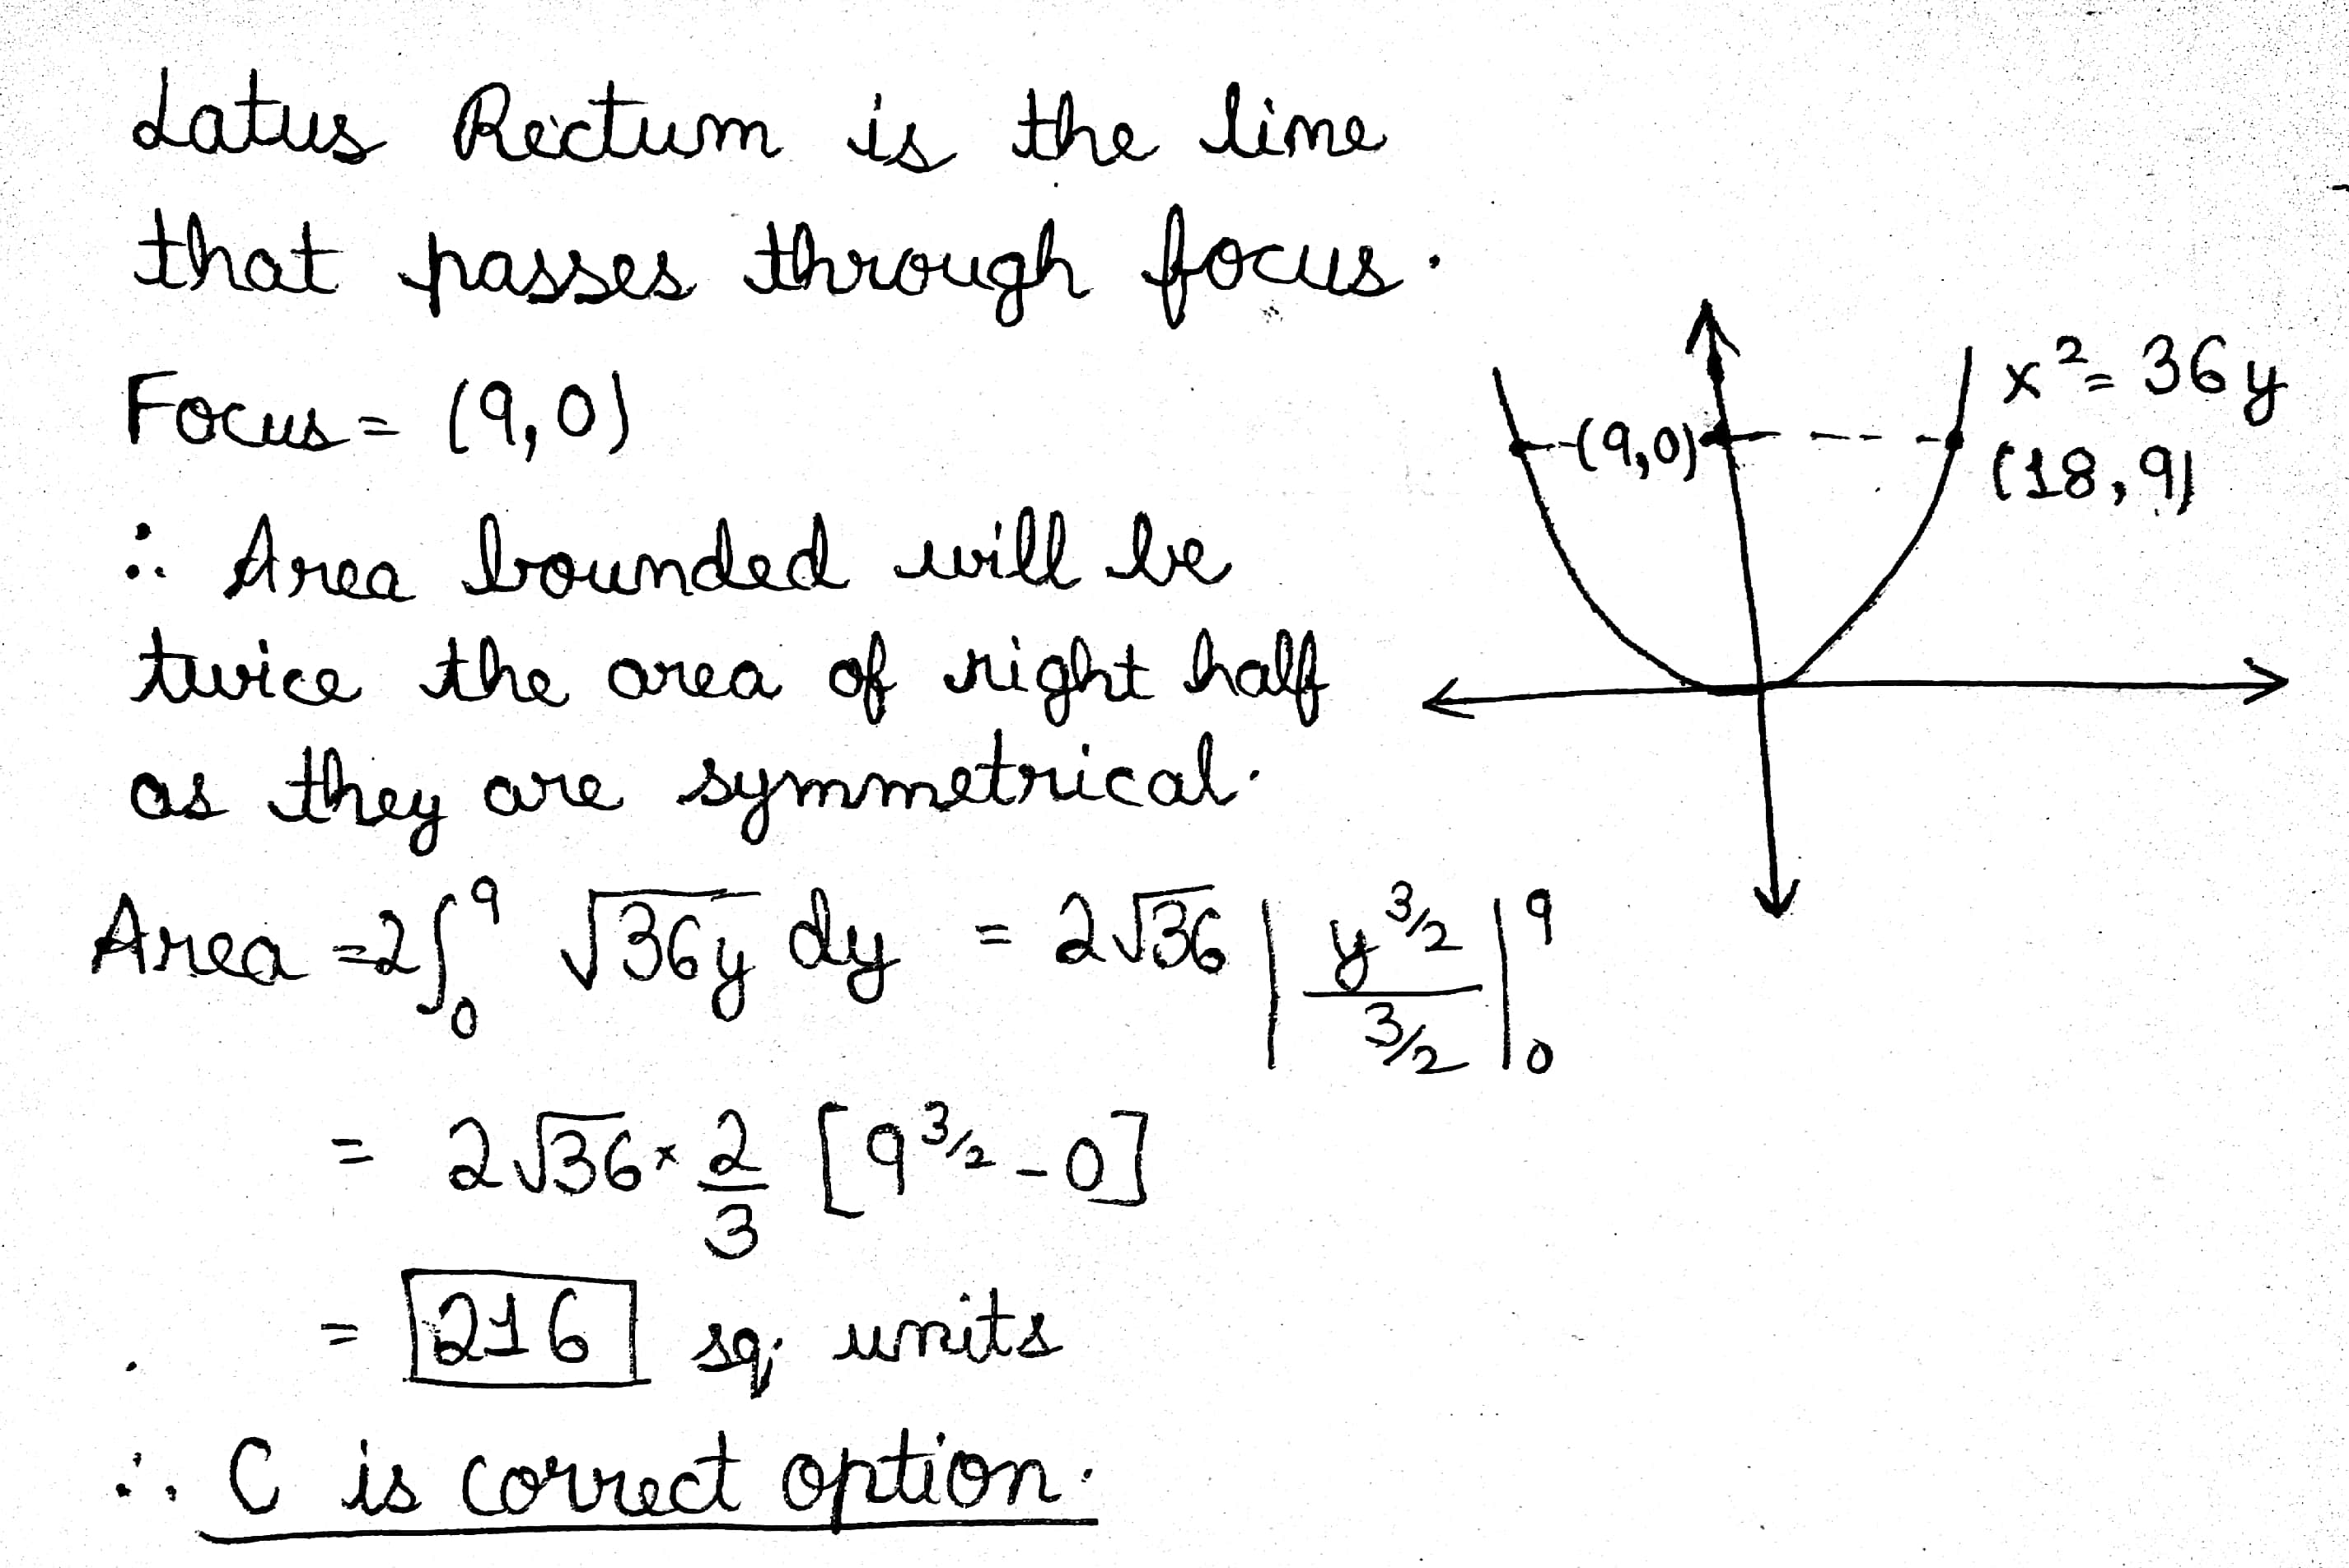 Latus Rectum is the line
that passes through focus.
Focus = (9,0)
∴ Area bounded will be
twice the area of right half
as they are symmetrical.
x² = 36y
(9,0)
(18,9)
Area = 2∫₀⁹ √36y dy = 2√36 | y^3/2 / 3/2 |₀⁹
= 2√36 × 2/3 [9^3/2 - 0]
= 216 sq. units
∴ C is correct option.